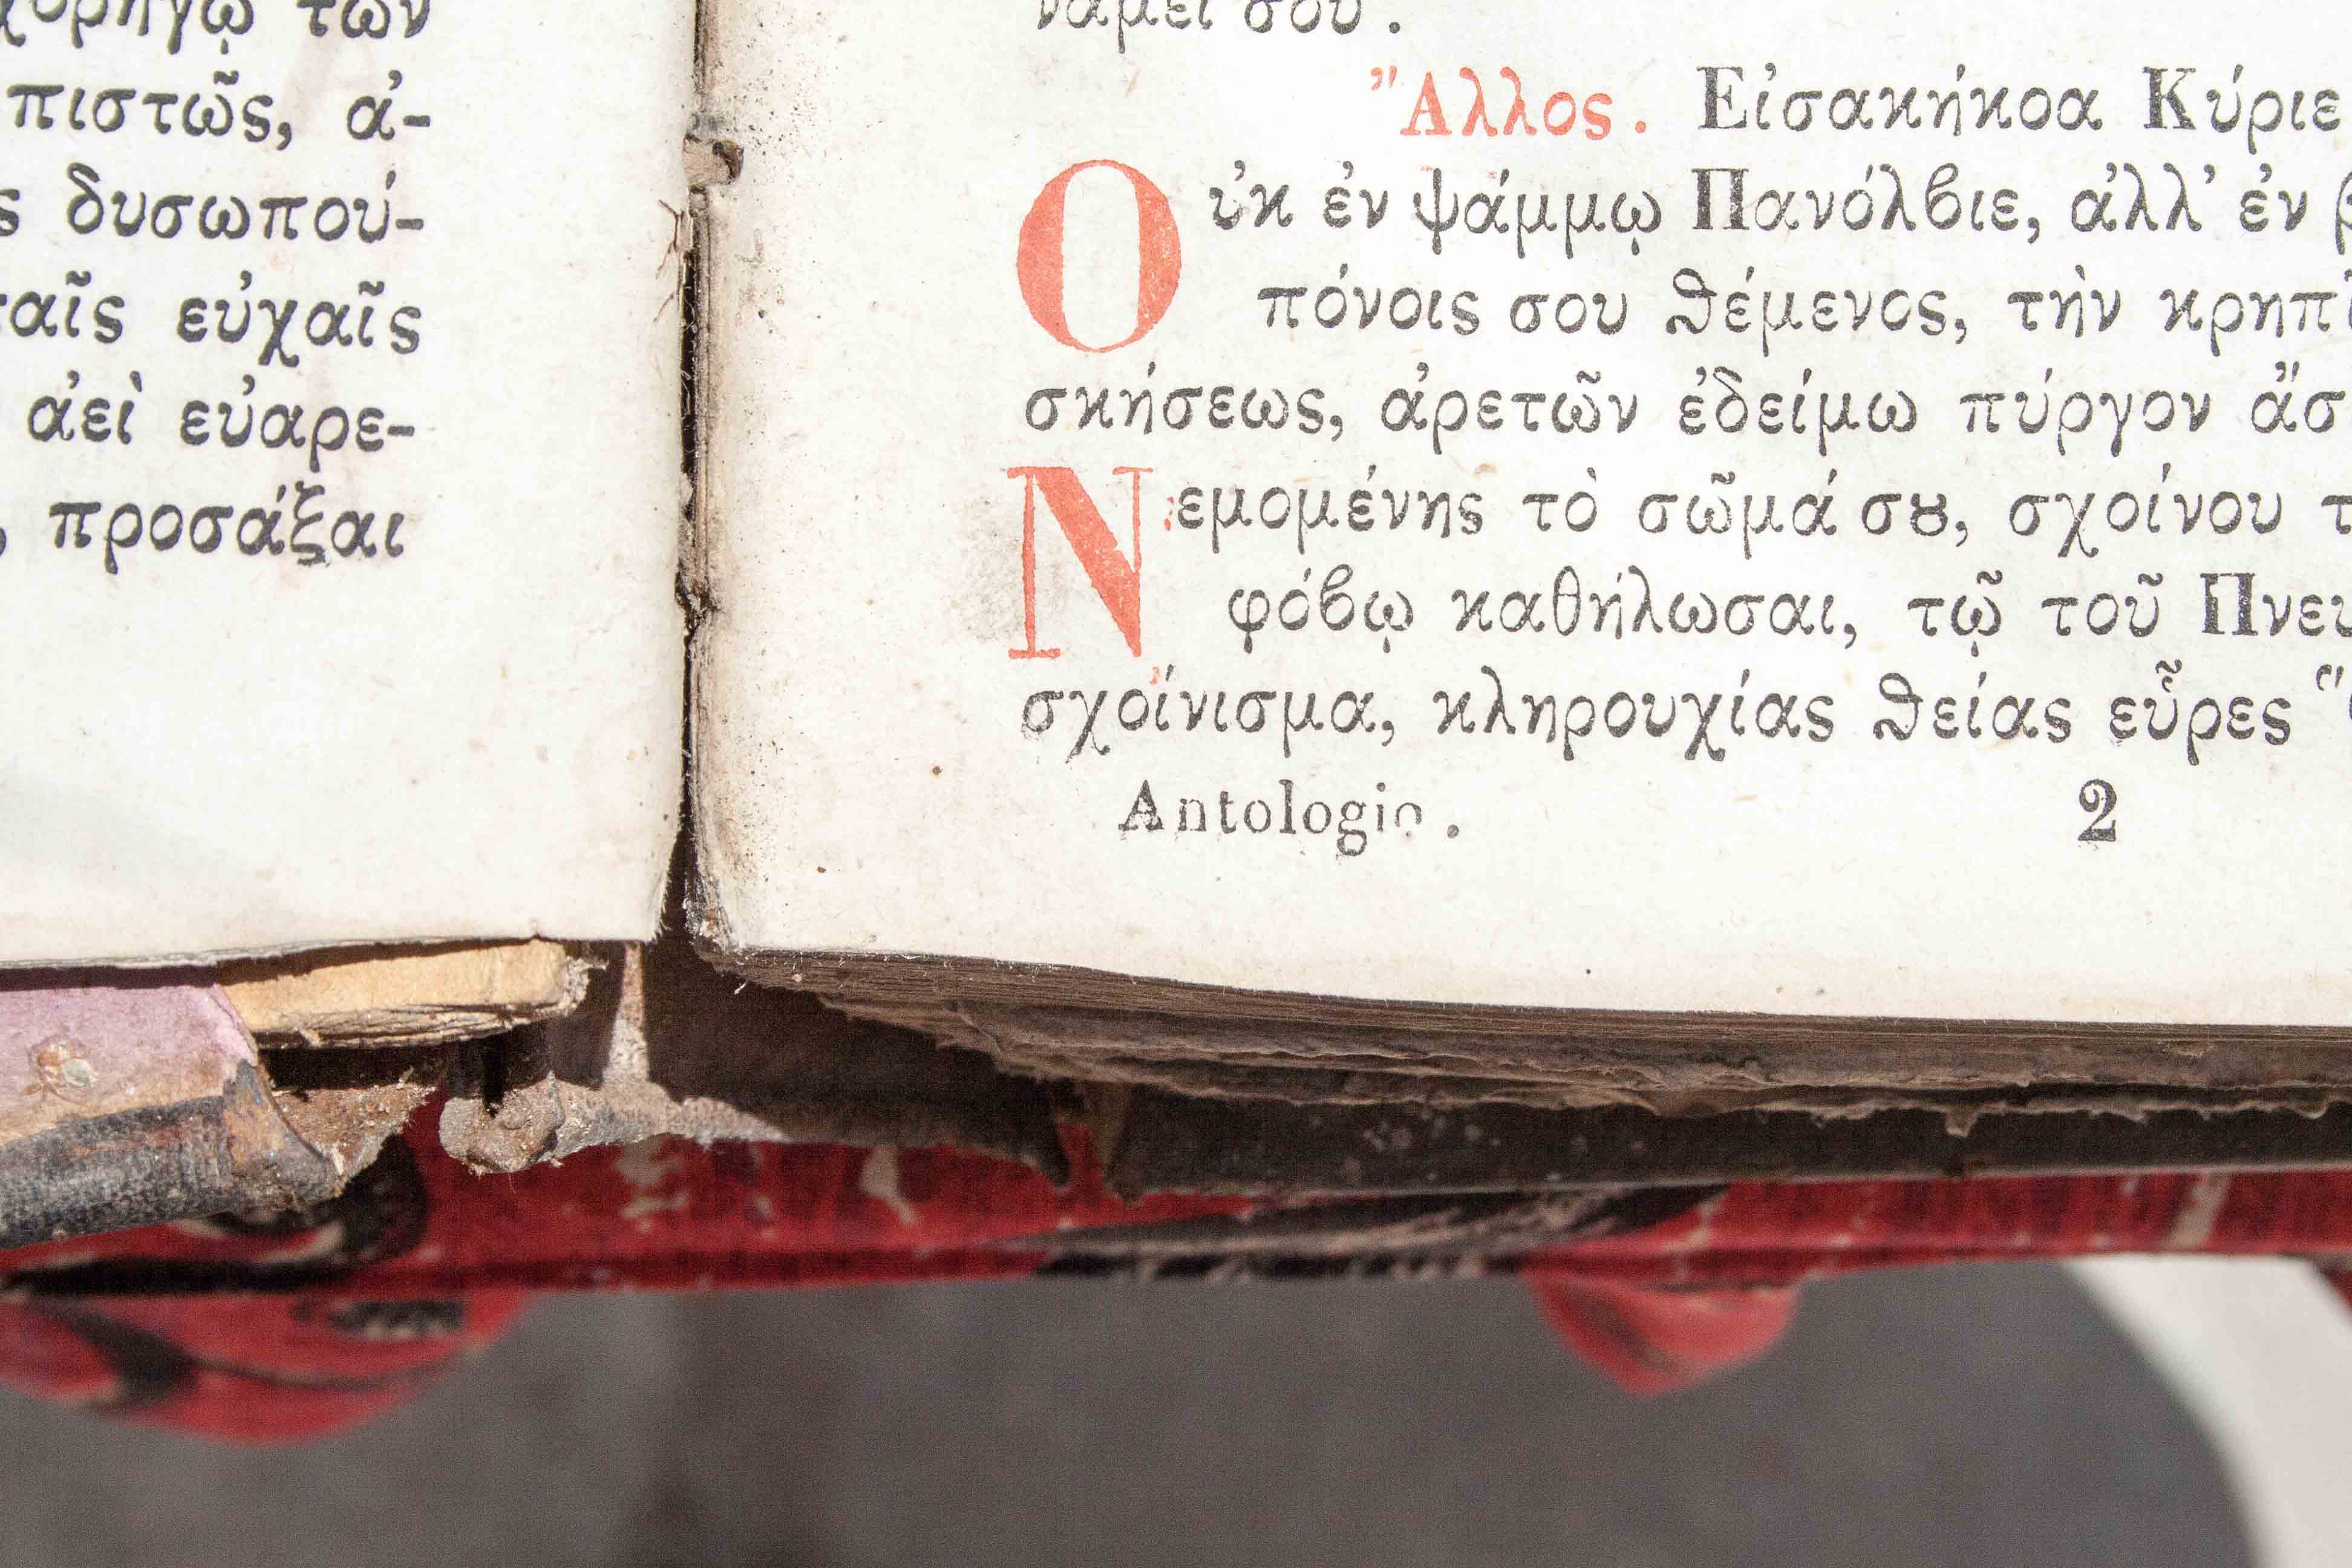 των
πιστῶς, ἀ-
δυσωπού-
εὐχαῖς
ἀεὶ εὐαρε-
προσάξαι
σου.
Ἄλλος. Εἰσακήκοα Κύριε
Οὐκ ἐν ψάμμῳ Πανόλβιε, ἀλλ' ἐν
πόνοις σου θέμενος, τὴν κρηπῖ
σκήσεως, ἀρετῶν ἐδείμω πύργον ἄσ
Νεμομένης τὸ σῶμά σȣ, σχοίνου τ
φόβῳ καθήλωσαι, τῷ τοῦ Πνευ
σχοίνισμα, κληρουχίας θείας εὗρες
Antologio. 2